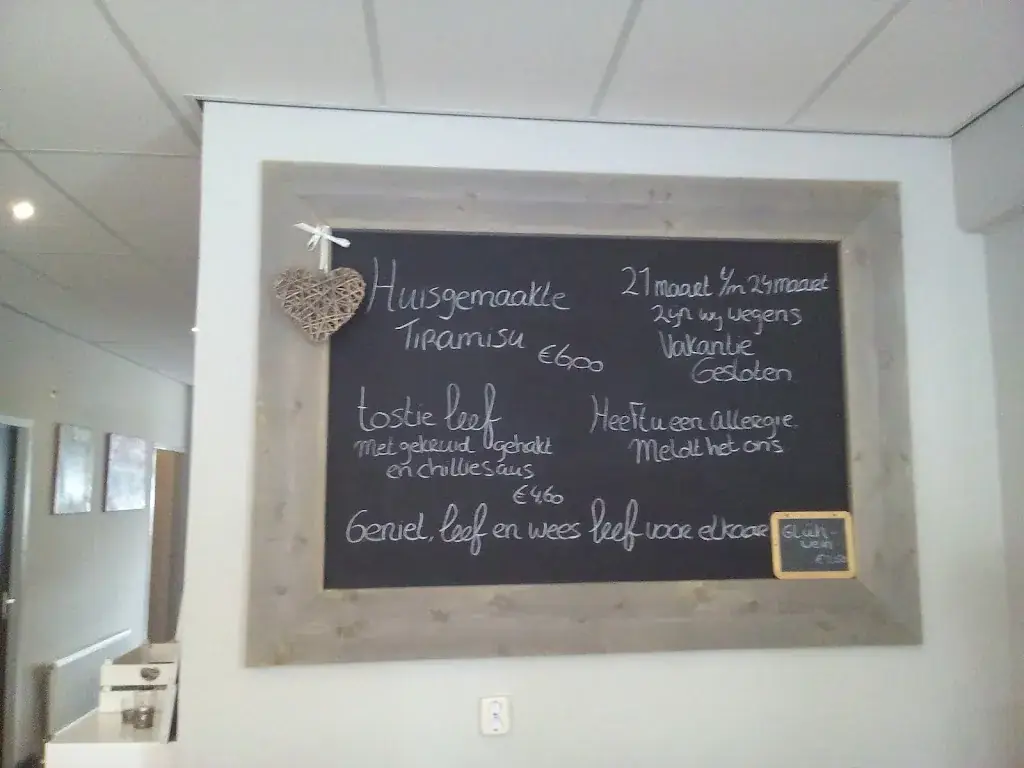 Huisgemaakte
Tiramisu
€6,00
tostie leef
met gekruid gehakt
en chilliesaus
€4,60
21 maart t/m 24 maart
zijn wij wegens
Vakantie
Gesloten
Heeft u een Allergie.
Meldt het ons
Geniet, leef en wees leef voor elkaar
Glüh-
wein